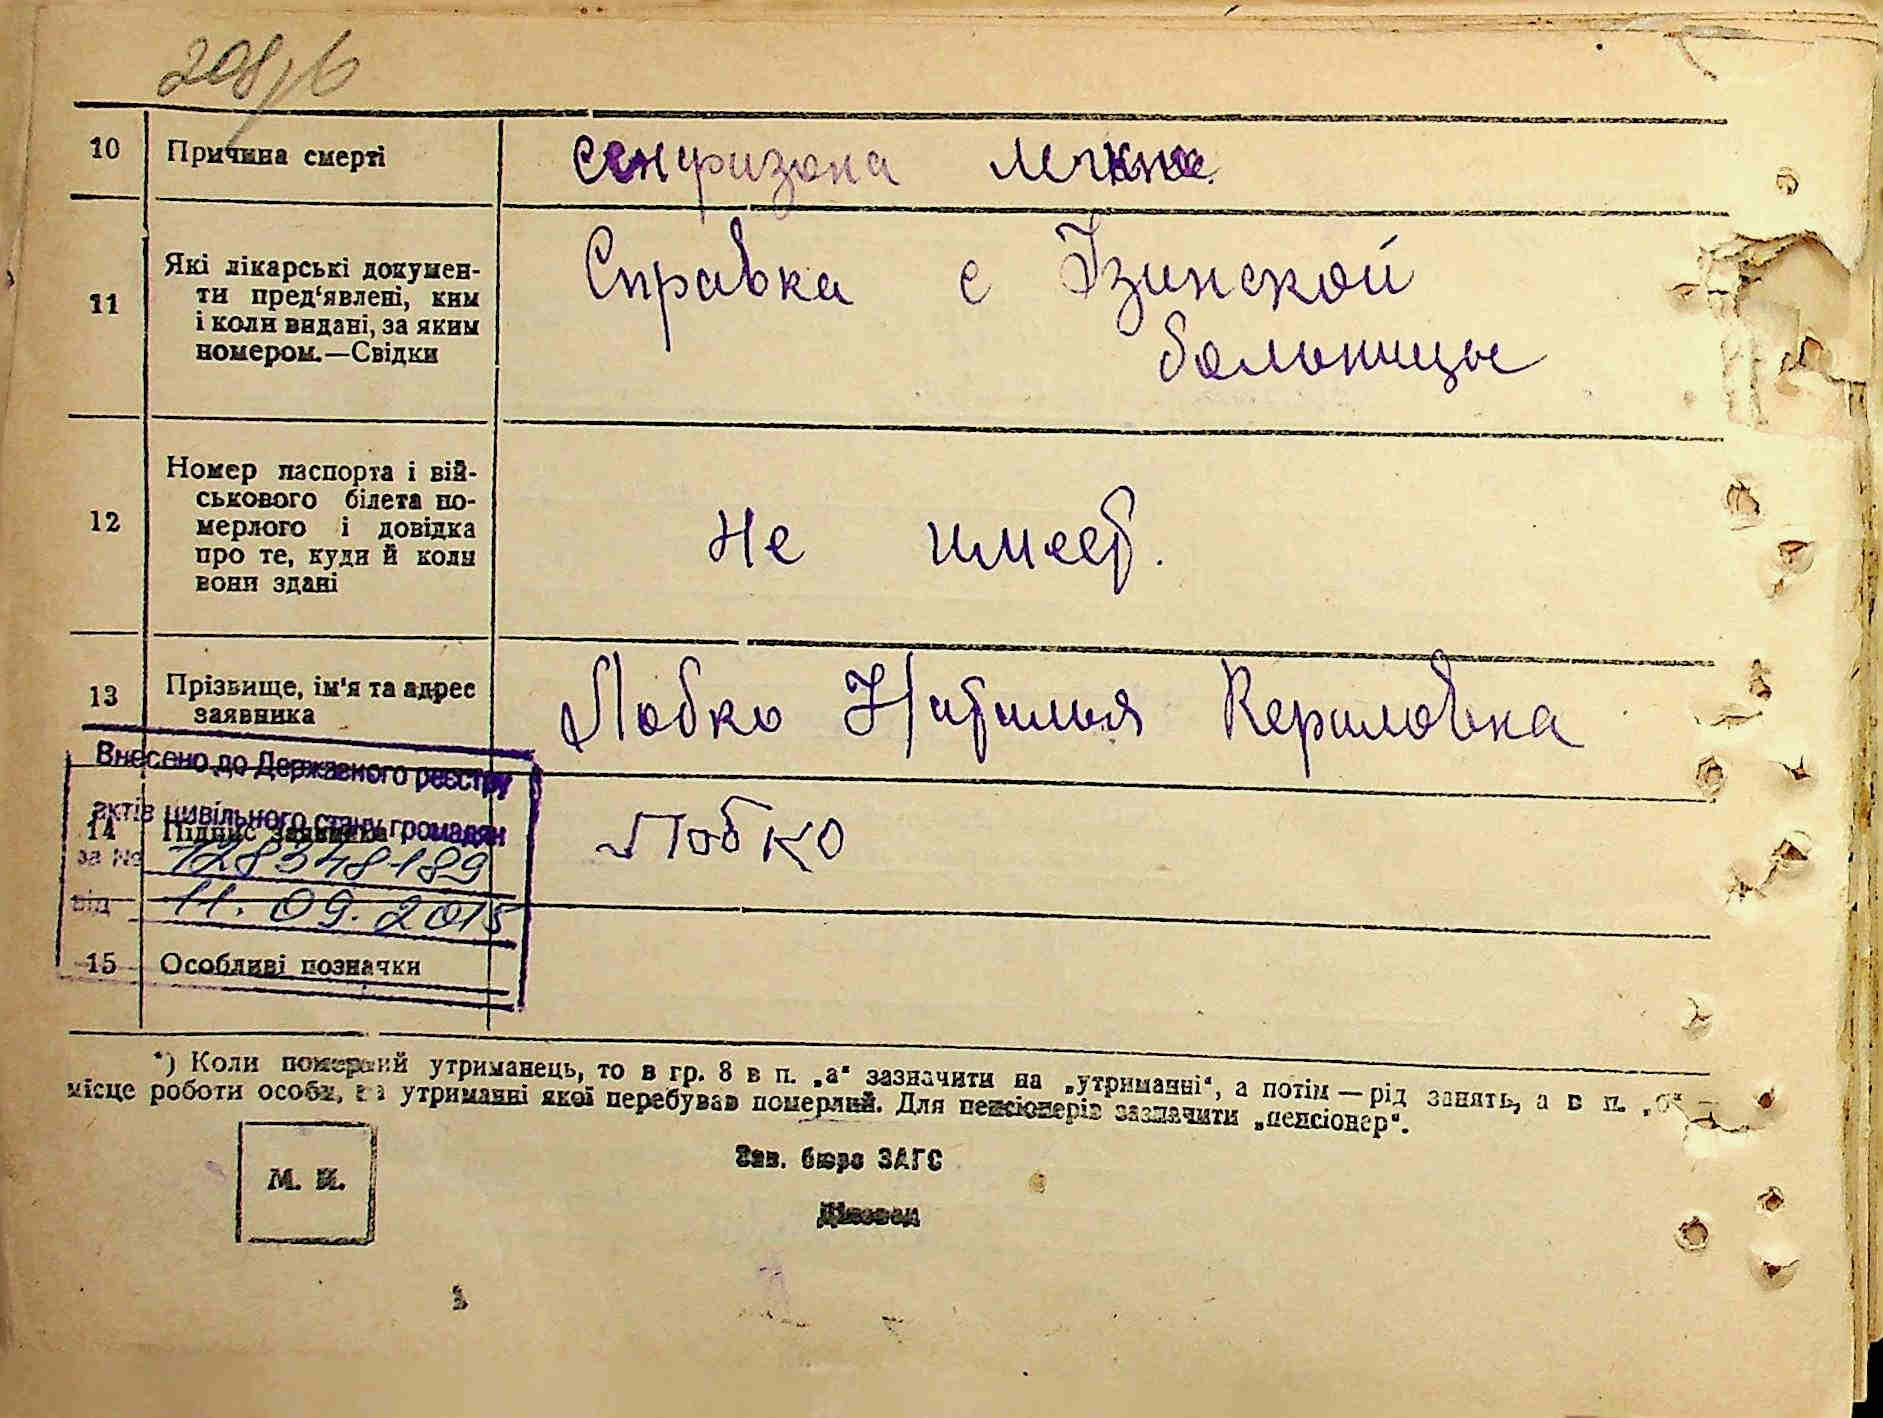 208/6
10 Причина смерті
легкие
11 Які лікарські докумен-
ти пред‘явлені, ким
і коли видані, за яким
номером.—Свідки
Справка с Ізинской
больницы
12 Номер паспорта і вій-
ськового білета по-
мерлого і довідка
про те, куди й коли
вони здані
Не имеет.
13 Прізвище, ім'я та адрес
заявника
Лобко Наталья Кериловна
Внесено до Державного реєстру
актів цивільного стану громадян
14 Підпис заявника
Лобко
за № 128348189
від 11.09.2015
15 Особливі позначки
*) Коли померлий утриманець, то в гр. 8 в п. „а“ зазначити на „утриманні“, а потім — рід занять, а в п. „б“ —
місце роботи особи, на утриманні якої перебував померлий. Для пенсіонерів зазначити „пенсіонер“.
М. П.
Зав. бюро ЗАГС
Діловод